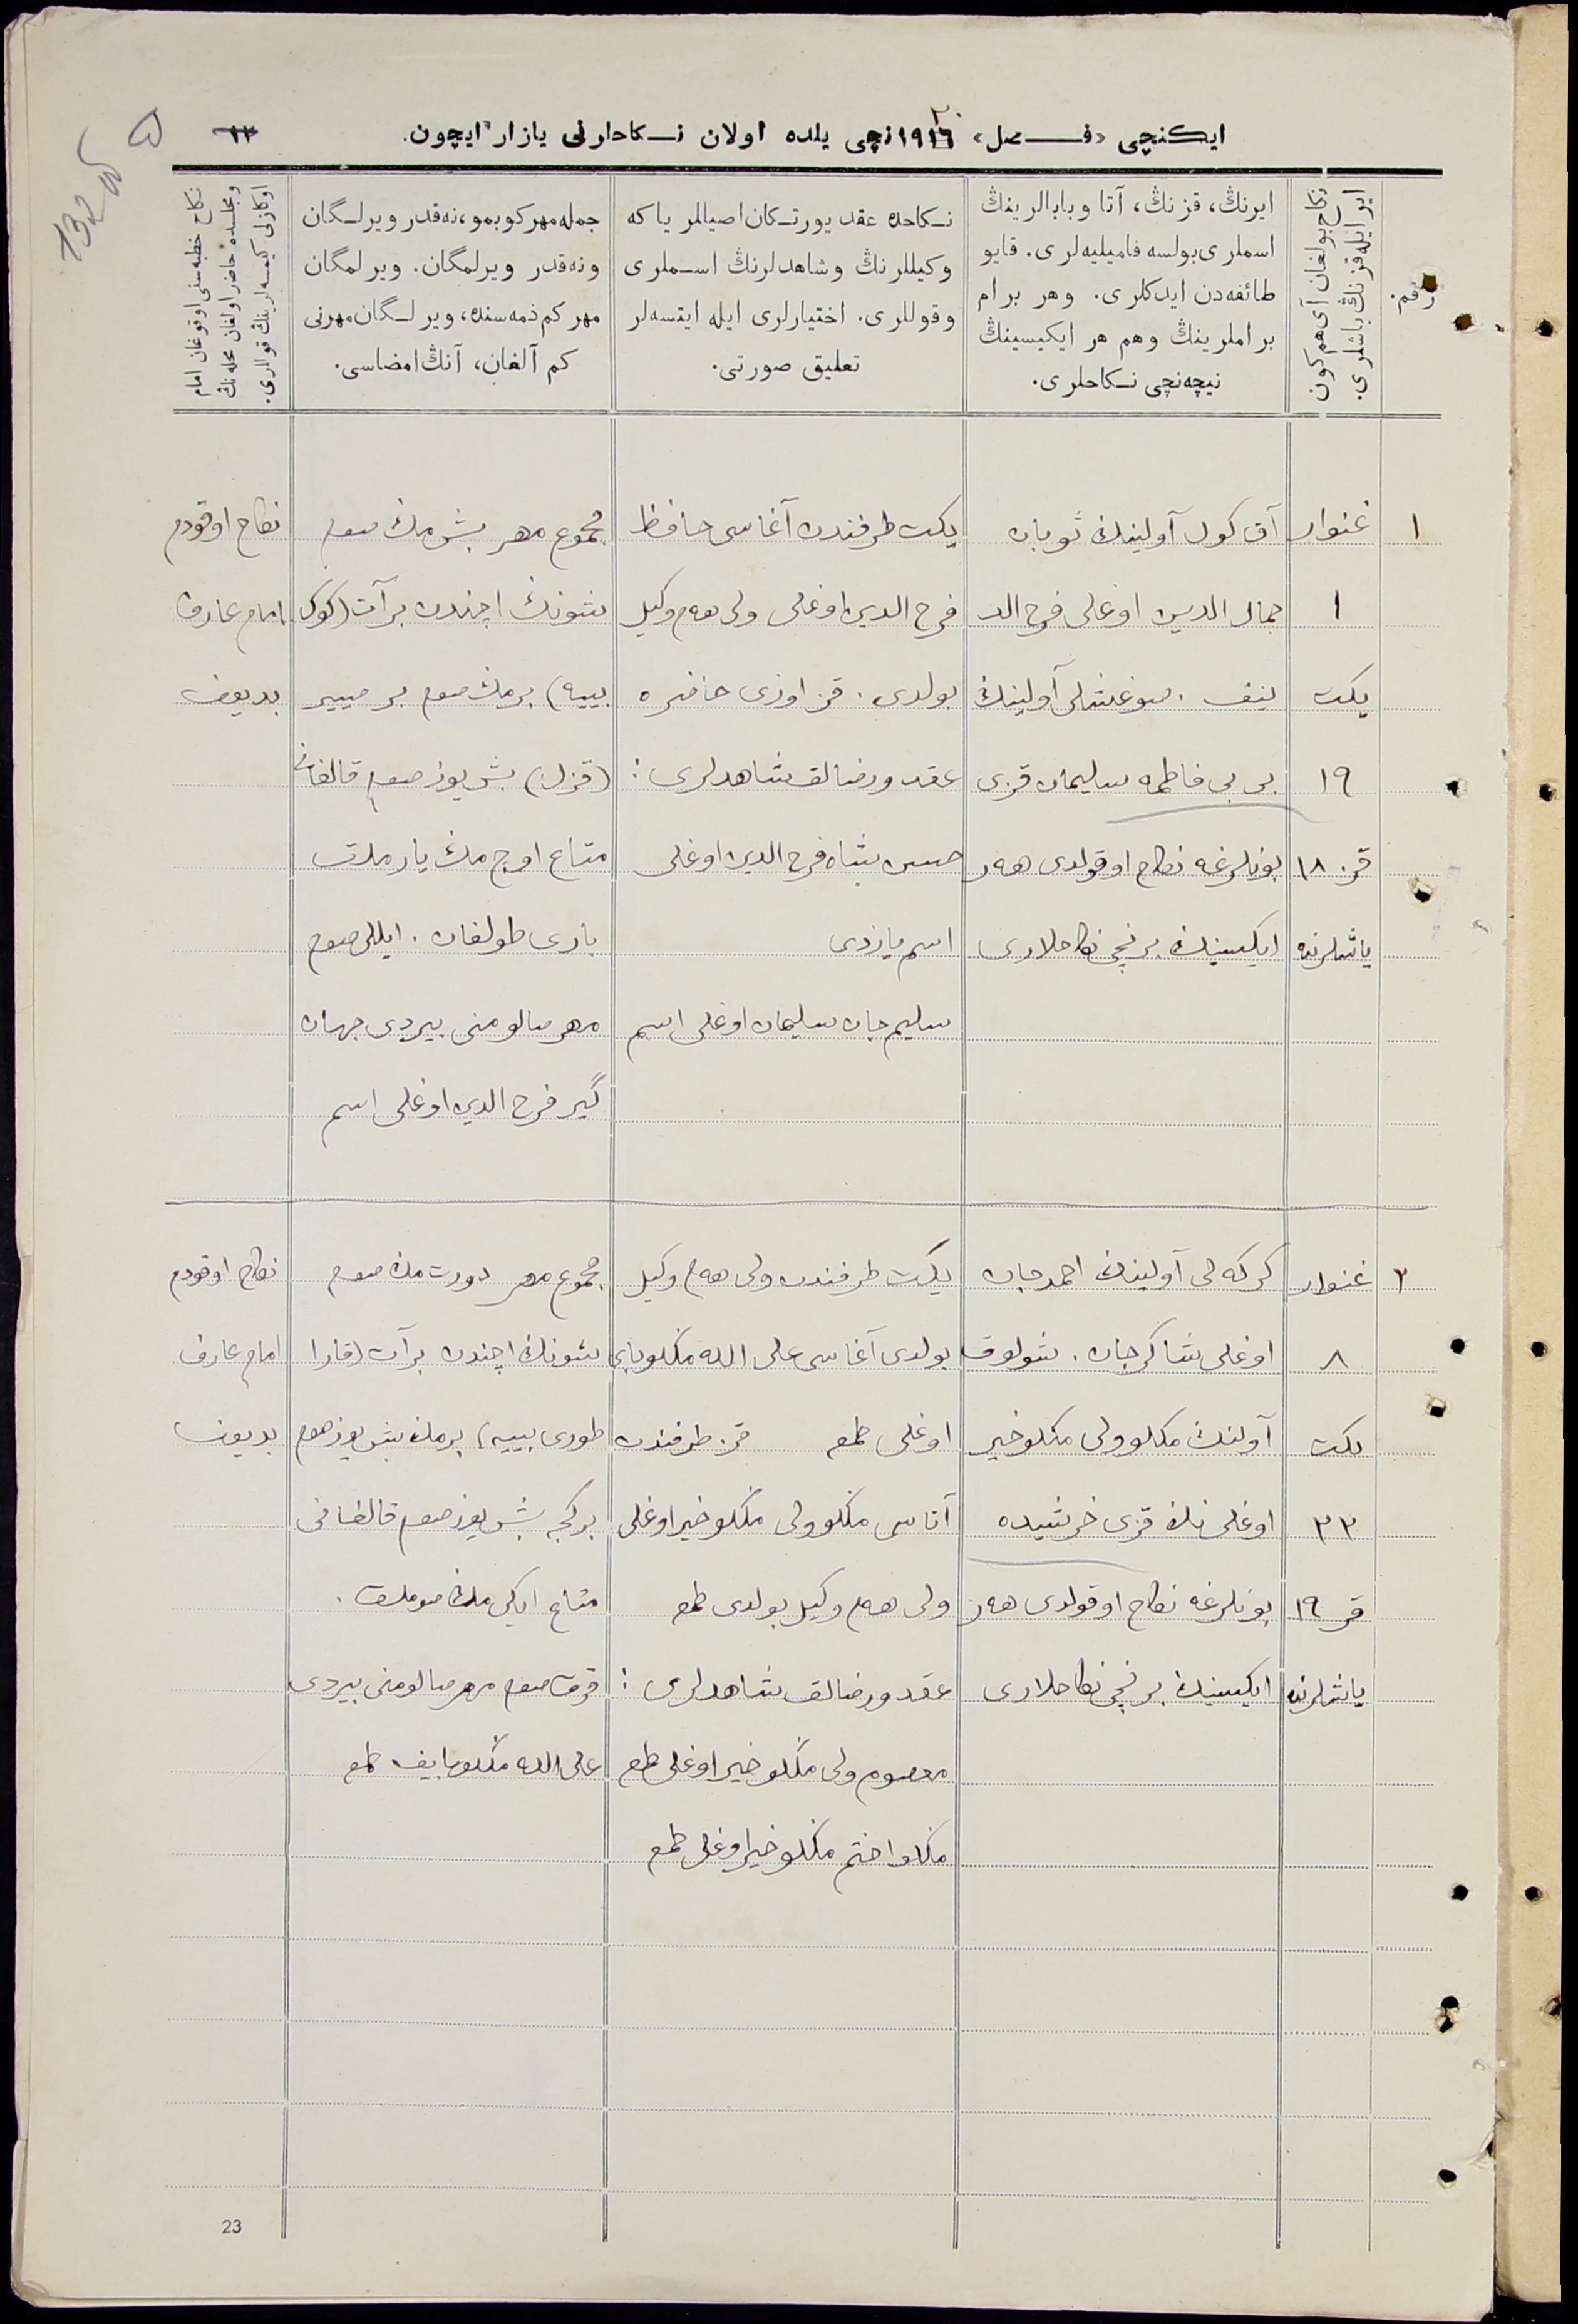 ایكنچی «فصل» ۱۹۲۰ نچی یلده اولان نكاحلرنی یازار ایچون.
۱۳
132 об
رقم.
ایر ایله قزنڭ یاشلری. نكاح بولغان آی هم كون
ایرنڭ، قزنڭ، آتا و بابالرینڭ
اسملری بولسه فامیلیه‌لری. قایو
طائفه‌دن ایدكلری. وهر برام
براملرینڭ وهم هر ایكیسینڭ
نیچه‌نچی نكاحلری.
نكاحده عقد یورتكان اصیللر یا كه
وكیللرنڭ و شاهدلرنڭ اسملری
وقوللری. اختیارلری ایله ایتسه‌لر
تعلیق صورتی.
جمله مهر كوبمو، نه‌قدر ویرلگان
ونه‌قدر ویرلمگان. ویرلمگان
مهر كم ذمه‌سنده، ویرلگان مهرنی
كم آلغان، آنڭ امضاسی.
نكاح خطبه‌سنی اوقوغان امام
ومجلسده حاضر اولغان محله‌نڭ
اوكازلی كیمسه‌لرینڭ قوللری.
۱
غنوار
۱
یكت
۱۹
قز ۱۸
یاشلرنده
آق كول آولینڭ ثوبان
جمال الدین اوغلی فرح الد
ینف. صوغشلی آولینڭ
بی بی فاطمه سلیمان قزی
بونلرغه نكاح اوقولدی هەر
ایكیسینڭ برنچی نكاحلاری
یكت طرفندن آغاسی حافظ
فرح الدین اوغلی ولی هەم وكیل
بولدی. قز اوزی حاضره
عقد ورضالق شاهدلری:
حسن شاه فرح الدین اوغلی
اسم یازدی
سلیم جان سلیمان اوغلی اسم
مجموع مهر بش مڭ صوم
شونڭ اچندن برآت (كوك
بییه) برمڭ صوم بر
(قزل) بش یوز صوم قالغان
متاع اوچ مڭ یارملق
باری طولغان. ایللی صوم
مهر صالومنی بیردی جهان
گیر فرح الدین اوغلی اسم
نكاح اوقودم
امام عارف
بدیعف
۲
غنوار
۸
یكت
۲۳
قز ۱۹
یاشلرنده
كركه لی آولینڭ احمدجان
اوغلی شاكرجان. شولوق
آولنڭ منكلوولی منكلوخیر
اوغلی نڭ قزی خرشیده
بونلرغه نكاح اوقولدی هەر
ایكیسینڭ برنچی نكاحلاری
یكت طرفندن ولی هەم وكیل
بولدی آغاسی علی الله منكلوبای
اوغلی طمع قز طرفندن
آتاسی منكلوولی منكلوخیر اوغلی
ولی هەم وكیل بولدی طمع
عقد ورضالق شاهدلری:
معصوم ولی منكلوخیر اوغلی طمع
منكلواختم منكلوخیر اوغلی طمع
مجموع مهر دورت مڭ صوم
شونڭ اچندن برآت (قارا
طوری بییه) برمڭ بش یوز صوم
بش یوز صوم قالغانی
متاع ایكی مڭ صوملق.
قرق صوم مهر صالومنی بیردی
علی الله منكلوبایف طمع
نكاح اوقودم
امام عارف
بدیعف
23